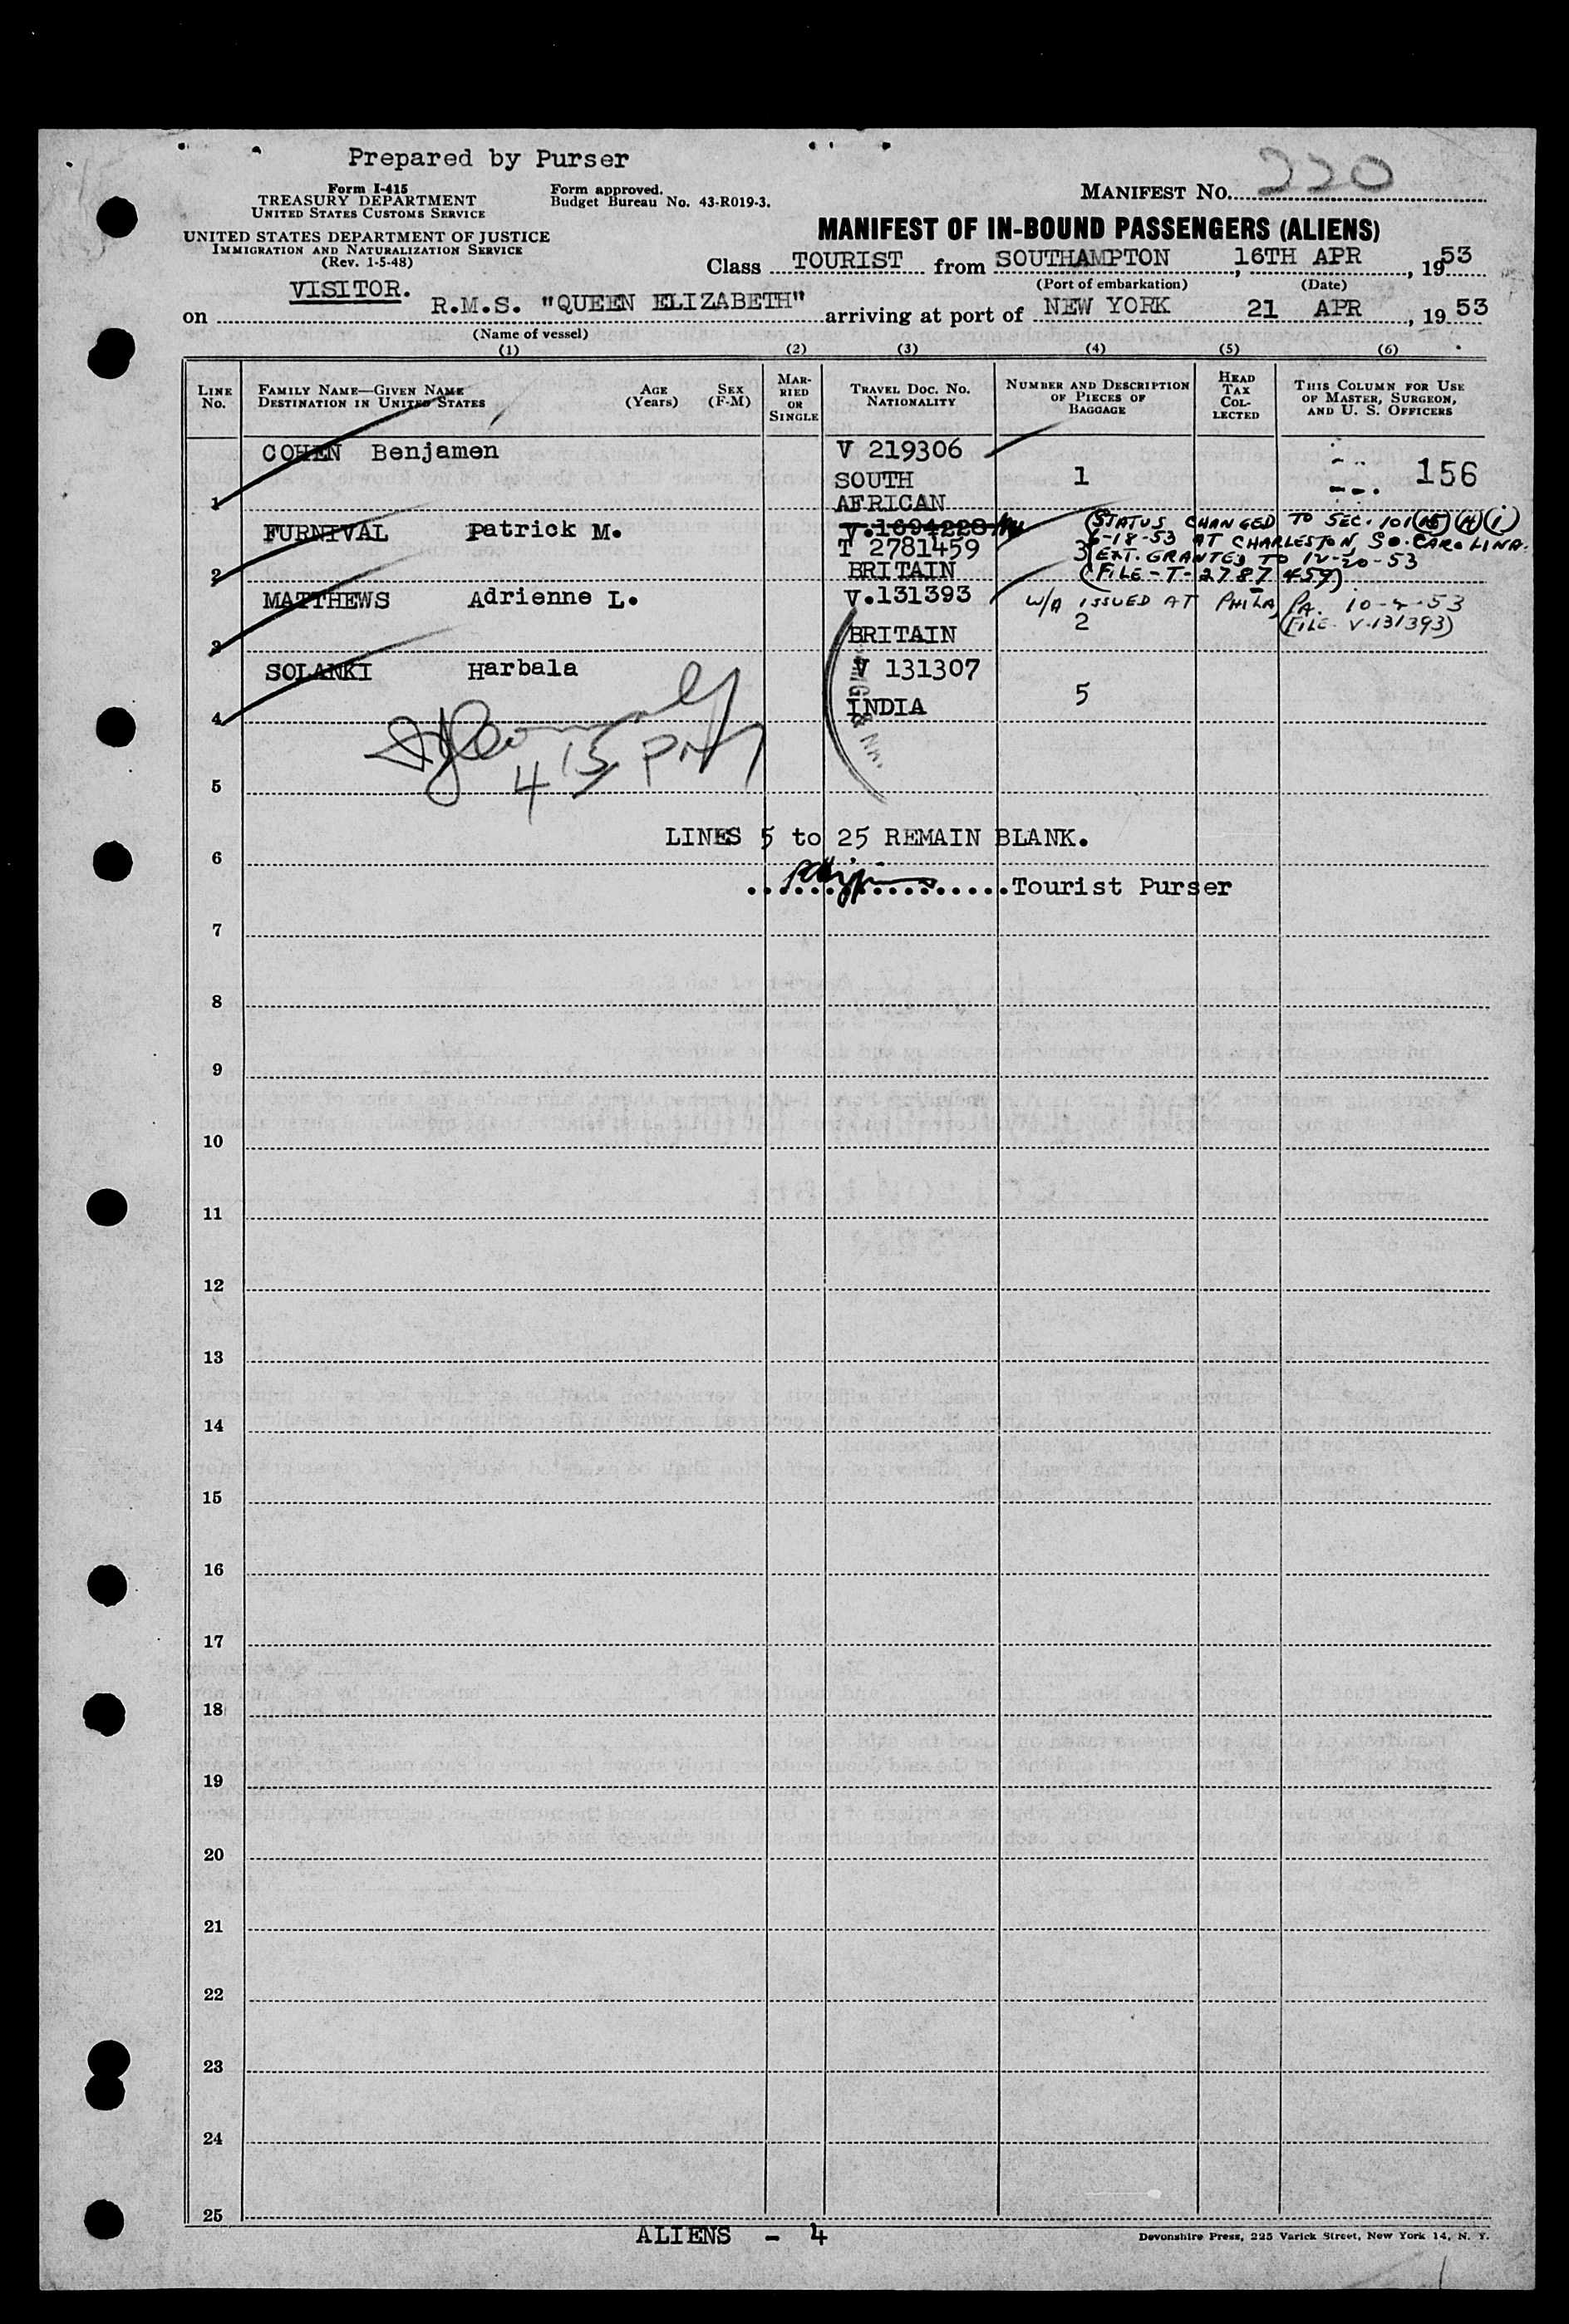 Prepared by Purser
Form I-415
TREASURY DEPARTMENT
UNITED STATES CUSTOMS SERVICE
Form approved.
Budget Bureau No. 43-R019-3.
MANIFEST NO. 220
UNITED STATES DEPARTMENT OF JUSTICE
IMMIGRATION AND NATURALIZATION SERVICE
(Rev. 1-5-48)
MANIFEST OF IN-BOUND PASSENGERS (ALIENS)
Class TOURIST from SOUTHAMPTON, 16TH APR, 1953
(Port of embarkation) (Date)
VISITOR.
on R.M.S. "QUEEN ELIZABETH" arriving at port of NEW YORK 21 APR, 1953
(Name of vessel)
(1) (2) (3) (4) (5) (6)
LINE No. FAMILY NAME—GIVEN NAME DESTINATION IN UNITED STATES AGE (Years) SEX (F-M) MARRIED OR SINGLE TRAVEL DOC. NO. NATIONALITY NUMBER AND DESCRIPTION OF PIECES OF BAGGAGE HEAD TAX COLLECTED THIS COLUMN FOR USE OF MASTER, SURGEON, AND U. S. OFFICERS
COHEN Benjamen V 219306
SOUTH 1 156
1 AFRICAN
FURNIVAL Patrick M. V.1694228 (STATUS CHANGED TO SEC. 101(15)(H)(i)
T 2781459 3 6-18-53 AT CHARLESTON, SO. CAROLINA.
EXT. GRANTED TO 12-20-53
2 BRITAIN (FILE-T-2787459)
MATTHEWS Adrienne L. V.131393 W/A ISSUED AT PHILA, PA. 10-2-53
2 (FILE V-131393)
3 BRITAIN
SOLANKI Harbala V 131307
5
4 INDIA
4 15 PM
5
LINES 5 to 25 REMAIN BLANK.
6
Tourist Purser
7
8
9
10
11
12
13
14
15
16
17
18
19
20
21
22
23
24
25
ALIENS - 4
Devonshire Press, 225 Varick Street, New York 14, N. Y.